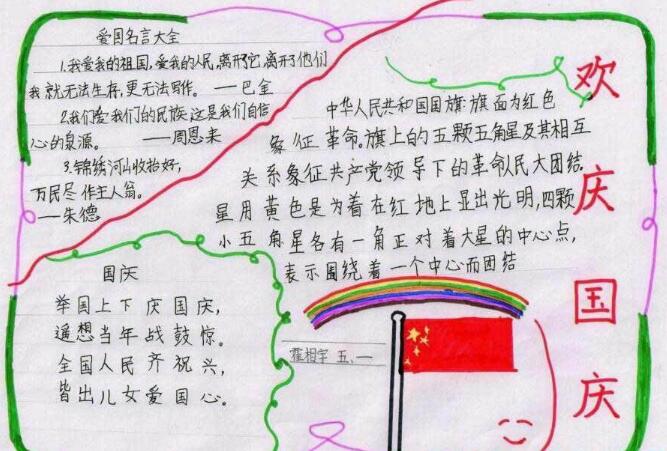 爱国名言大全
1.我爱我的祖国,爱我的人民,离开了它,离开了他们
我就无法生存,更无法写作。——巴金
2.我们爱我们的民族,这是我们自信
心的泉源。——周恩来
3.锦绣河山收拾好,
万民尽作主人翁。
——朱德
中华人民共和国国旗:旗面为红色
象征革命。旗上的五颗五角星及其相互
关系象征共产党领导下的革命人民大团结
星用黄色是为着在红地上显出光明,四颗
小五角星各有一角正对着大星的中心点,
表示围绕着一个中心而团结
欢
庆
国
庆
国庆
举国上下庆国庆,
遥想当年战鼓惊。
全国人民齐祝兴,
皆出儿女爱国心。
霍相宇 五、一